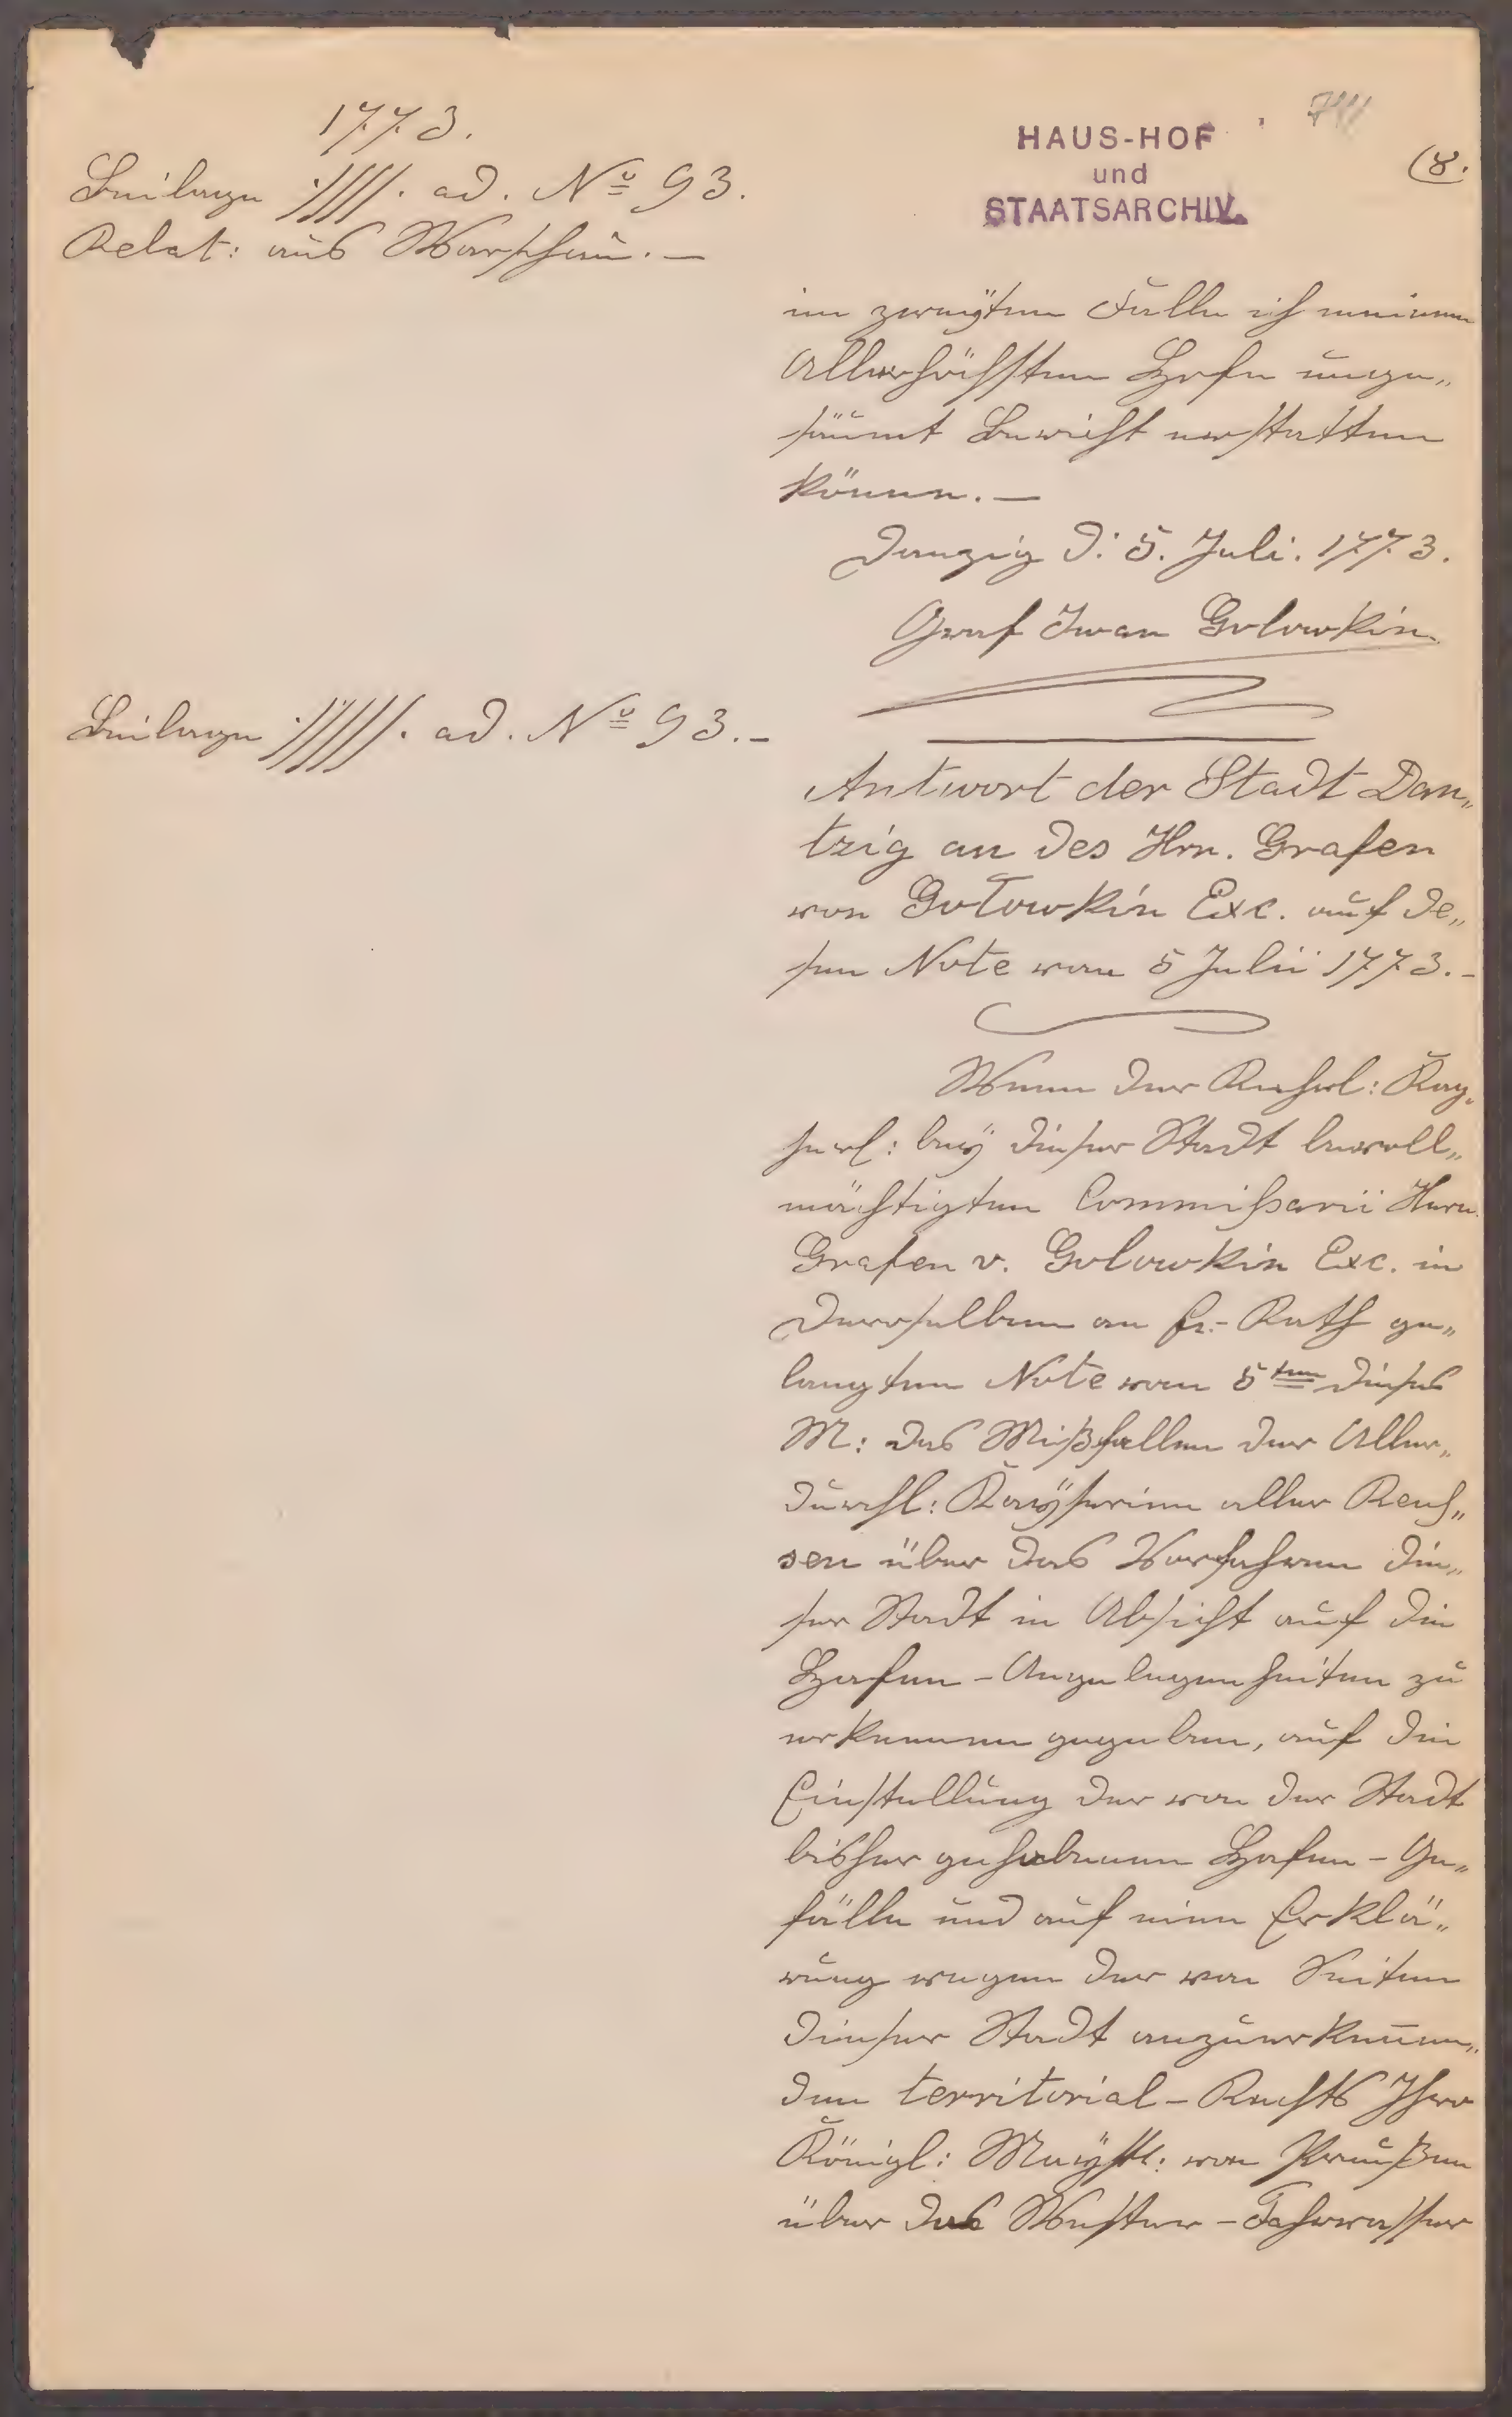 1773.
Beilage ·////. ad. No 93.
Relat: aus Warschau. —
HAUS-HOF
und
STAATSARCHIV.
(8.
im zweÿten Falle ich meinem
Allerhöchsten Hofe unge„
säumt Bericht erstatten
könne. —
Danzig d: 5. Juli. 1773.
Graf Iwan Golowkin
Beilage ·/////. ad. No 93. –
Antwort der Stadt Dan„
tzig an des Hrn. Grafen
von Golowkin Exc. auf de„
sen Note vom 5 Julii 1773. –
Wenn der Rußl: Kay„
serl: beÿ dieser Stadt bevoll„
mächtigten Commißarii Herrn
Grafen v. Golowkin Exc. in
Deroselben an E.- Rath ge„
langten Note vom 5ten dieses
M: das Mißfallen der Aller„
durchl: Kaÿserinn aller Reus„
sen über das Verfahren die„
ser Stadt in Absicht auf die
Hafen-Angelegenheiten zu
erkennen gegeben, auf die
Einstellung der von der Stadt
bisher gehobenen Hafen-Ge„
fälle und auf eine Erklä„
rung wegen der von Seiten
dieser Stadt anzuerkennen„
den territorial-Rechts Ihro
Königl: Maÿst: von Preußen
über das Wester-Fahrwasser